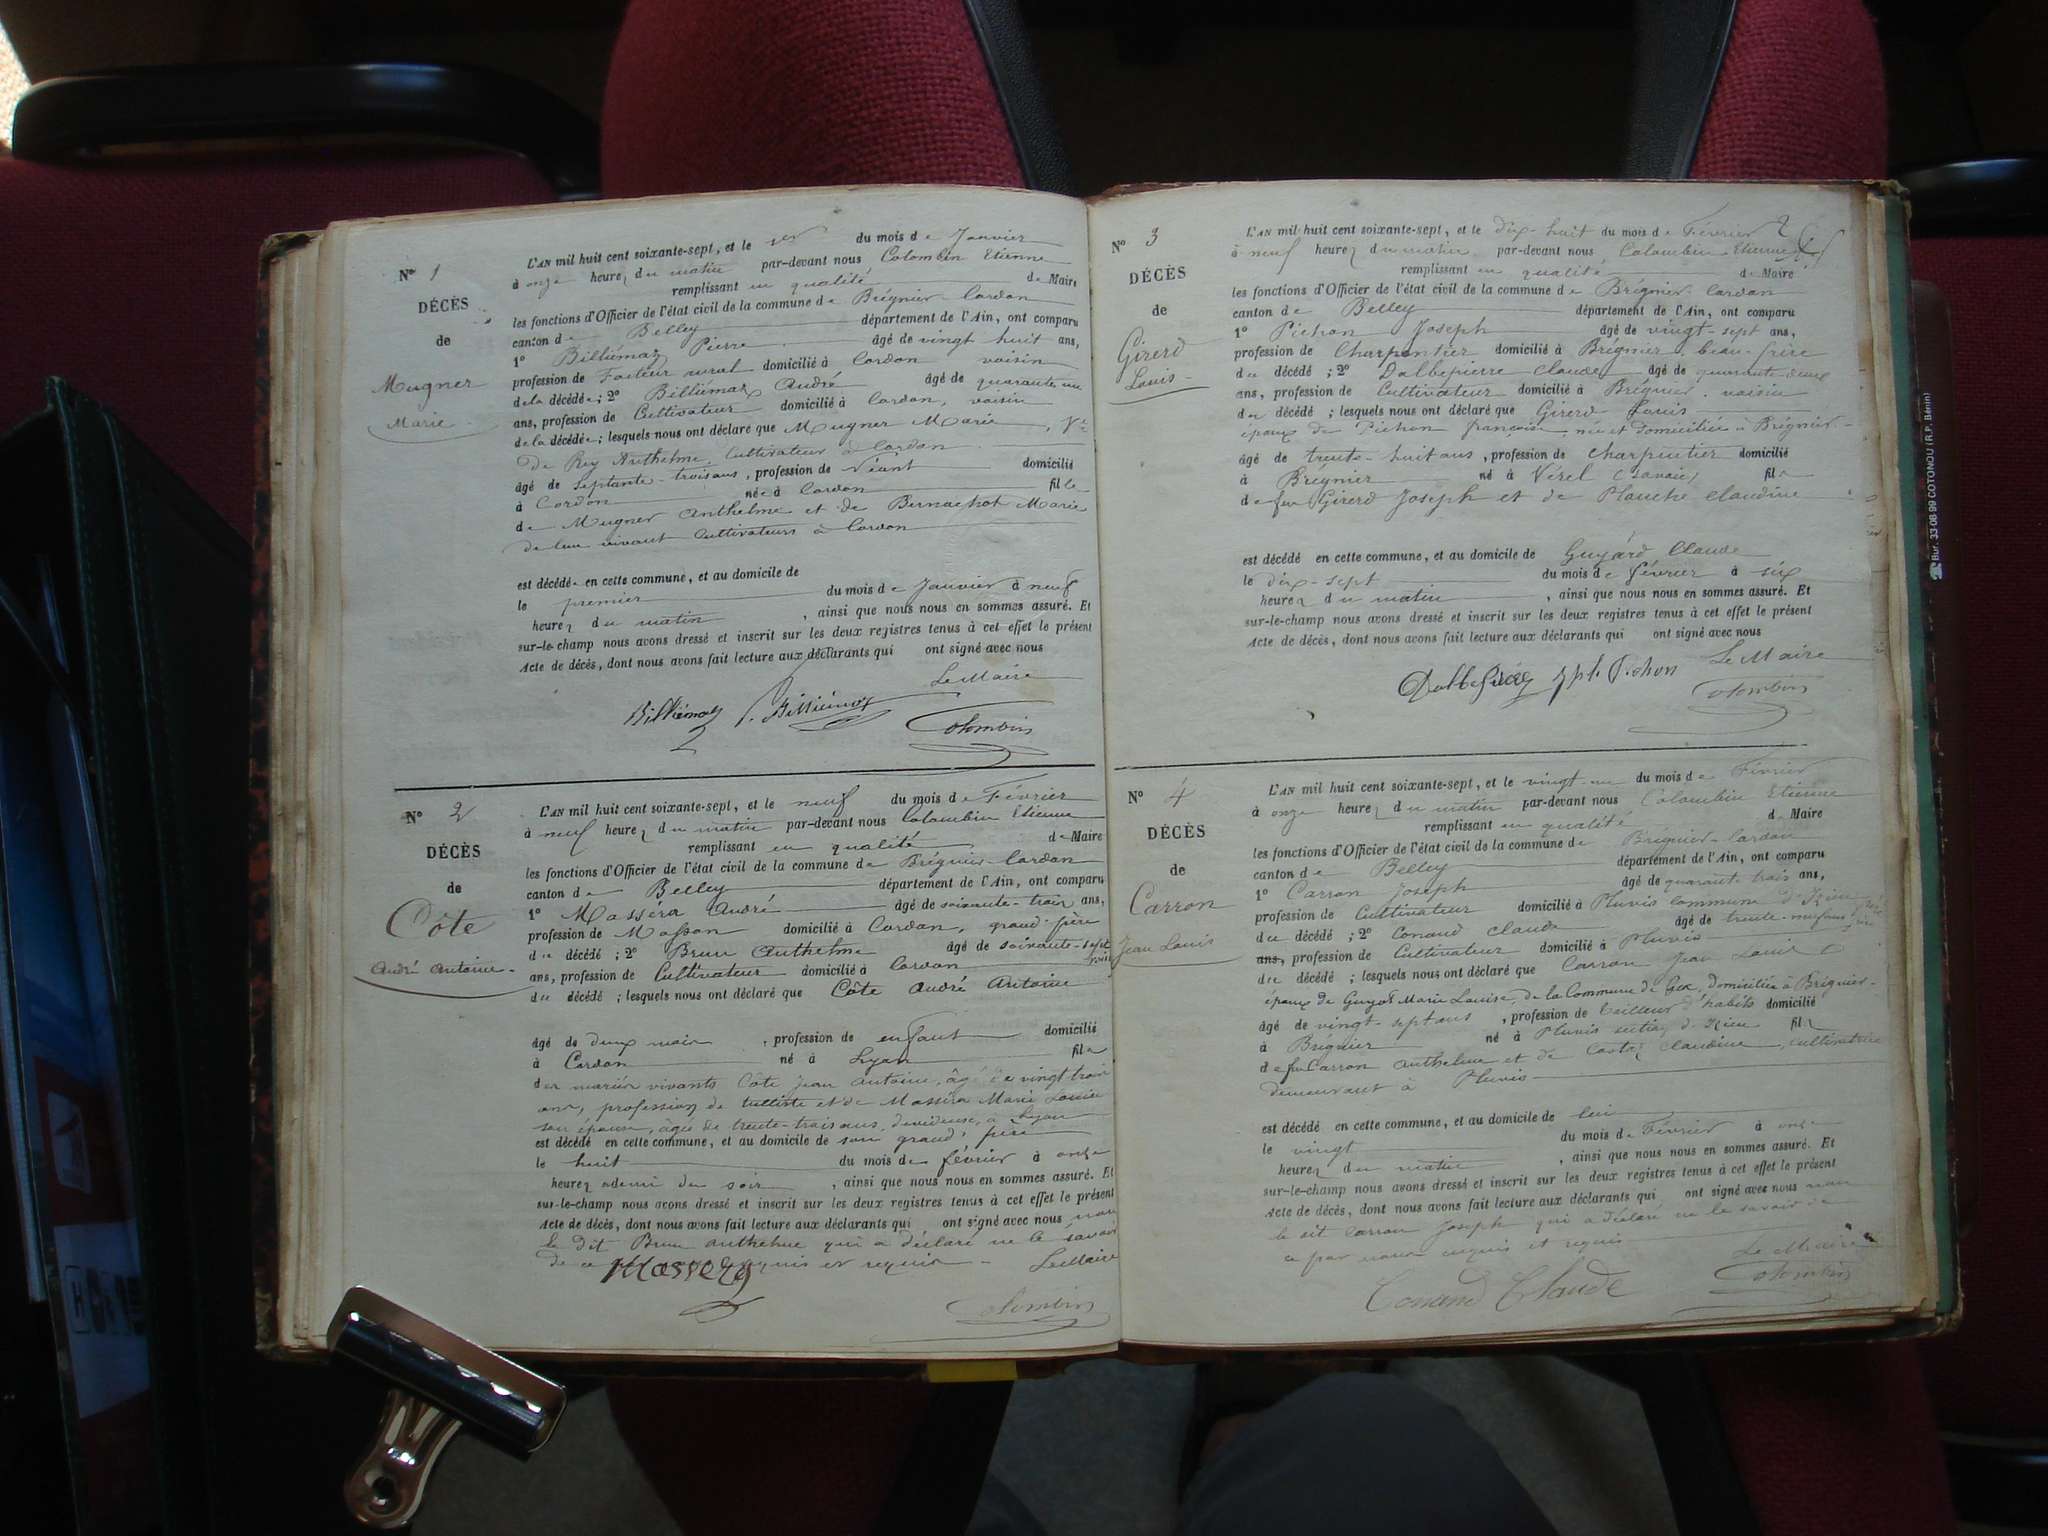 N° 1
DÉCÈS
de
Mugner
Marie
L'AN mil huit cent soixante-sept, et le 1er du mois de Janvier
à onze heures du matin par-devant nous Colombin Etienne
remplissant en qualité de Maire
les fonctions d'Officier de l'état civil de la commune de Brégnier-Cordon
canton de Belley département de l'Ain, ont comparu
1° Billiémaz Pierre âgé de vingt huit ans,
profession de Facteur rural domicilié à Cordon voisin
de la décédée; 2° Billiémaz André âgé de quarante un
ans, profession de Cultivateur domicilié à Cordon, voisin
de la décédée; lesquels nous ont déclaré que Mugner Marie, Ve
de Rey Anthelme, Cultivateur à Cordon
âgé de septante-trois ans, profession de Néant domicilié
à Cordon née à Cordon fille
de Mugner Anthelme et de Bernachot Marie
de leur vivant Cultivateurs à Cordon
est décédée en cette commune, et au domicile de
le premier du mois de Janvier à neuf
heures du matin, ainsi que nous nous en sommes assuré. Et
sur-le-champ nous avons dressé et inscrit sur les deux registres tenus à cet effet le présent
Acte de décès, dont nous avons fait lecture aux déclarants qui ont signé avec nous
Le Maire
Billiémaz P. Billiémaz Colombin
N° 2
DÉCÈS
de
Côte
André Antoine
L'AN mil huit cent soixante-sept, et le neuf du mois de Février
à neuf heures du matin par-devant nous Colombin Etienne
remplissant en qualité de Maire
les fonctions d'Officier de l'état civil de la commune de Brégnier-Cordon
canton de Belley département de l'Ain, ont comparu
1° Masséra André âgé de soixante-trois ans,
profession de Maçon domicilié à Cordon, grand-père
du décédé; 2° Brun Anthelme âgé de soixante-sept
ans, profession de Cultivateur domicilié à Cordon
du décédé; lesquels nous ont déclaré que Côte André Antoine
âgé de deux mois, profession de enfant domicilié
à Cordon né à Lyon fils
des mariés vivants Côte Jean Antoine, âgé de vingt trois
ans, profession de tulliste et de Masséra Marie Louise
son épouse, âgée de trente-trois ans, dévideuse, à Lyon
est décédé en cette commune, et au domicile de son grand père
le huit du mois de février à onze
heures et demi du soir, ainsi que nous nous en sommes assuré. Et
sur-le-champ nous avons dressé et inscrit sur les deux registres tenus à cet effet le présent
Acte de décès, dont nous avons fait lecture aux déclarants qui ont signé avec nous non
le dit Brun Anthelme qui a déclaré ne le savoir
de ce enquis et requis Le Maire
Massera
Colombin
N° 3
DÉCÈS
de
Girerd
Louis
L'AN mil huit cent soixante-sept, et le dix-huit du mois de Février
à neuf heures du matin par-devant nous Colombin Etienne
remplissant en qualité de Maire
les fonctions d'Officier de l'état civil de la commune de Brégnier-Cordon
canton de Belley département de l'Ain, ont comparu
1° Pichon Joseph âgé de vingt-sept ans,
profession de Charpentier domicilié à Brégnier, beau-frère
du décédé; 2° Dalbepierre Claude âgé de quarante deux
ans, profession de Cultivateur domicilié à Brégnier, voisin
du décédé; lesquels nous ont déclaré que Girerd Louis
époux de Pichon françoise, née et domiciliée à Brégnier
âgé de trente-huit ans, profession de charpentier domicilié
à Brégnier né à Vérel (Savoie) fils
de feu Girerd Joseph et de Planche Claudine
est décédé en cette commune, et au domicile de Guyard Claude
le dix-sept du mois de février à six
heures du matin, ainsi que nous nous en sommes assuré. Et
sur-le-champ nous avons dressé et inscrit sur les deux registres tenus à cet effet le présent
Acte de décès, dont nous avons fait lecture aux déclarants qui ont signé avec nous
Le Maire
Pichon
Colombin
N° 4
DÉCÈS
de
Carron
Jean Louis
L'AN mil huit cent soixante-sept, et le vingt un du mois de Février
à onze heures du matin par-devant nous Colombin Etienne
remplissant en qualité de Maire
les fonctions d'Officier de l'état civil de la commune de Brégnier-Cordon
canton de Belley département de l'Ain, ont comparu
1° Carron Joseph âgé de quarante trois ans,
profession de Cultivateur domicilié à Pluvis commune d'Izieu
du décédé; 2° Conand Claude âgé de trente-neuf ans
ans, profession de Cultivateur domicilié à Pluvis
du décédé; lesquels nous ont déclaré que Carron Jean Louis
époux de Guyot Marie Louise, de la Commune de Gex, domiciliée à Brégnier
âgé de vingt-sept ans, profession de tailleur d'habits domicilié
à Brégnier né à Pluvis d'Izieu fils
de feu Carron Anthelme et de Claudine, cultivatrice
demeurant à Pluvis
est décédé en cette commune, et au domicile de lui
le vingt du mois de Février à onze
heures du matin, ainsi que nous nous en sommes assuré. Et
sur-le-champ nous avons dressé et inscrit sur les deux registres tenus à cet effet le présent
Acte de décès, dont nous avons fait lecture aux déclarants qui ont signé avec nous non
le dit Carron Joseph qui a déclaré ne le savoir de
ce par nous enquis et requis
Le Maire
Conand Claude Colombin
Bur. 33 08 99 COTONOU (R.P. Bénin)